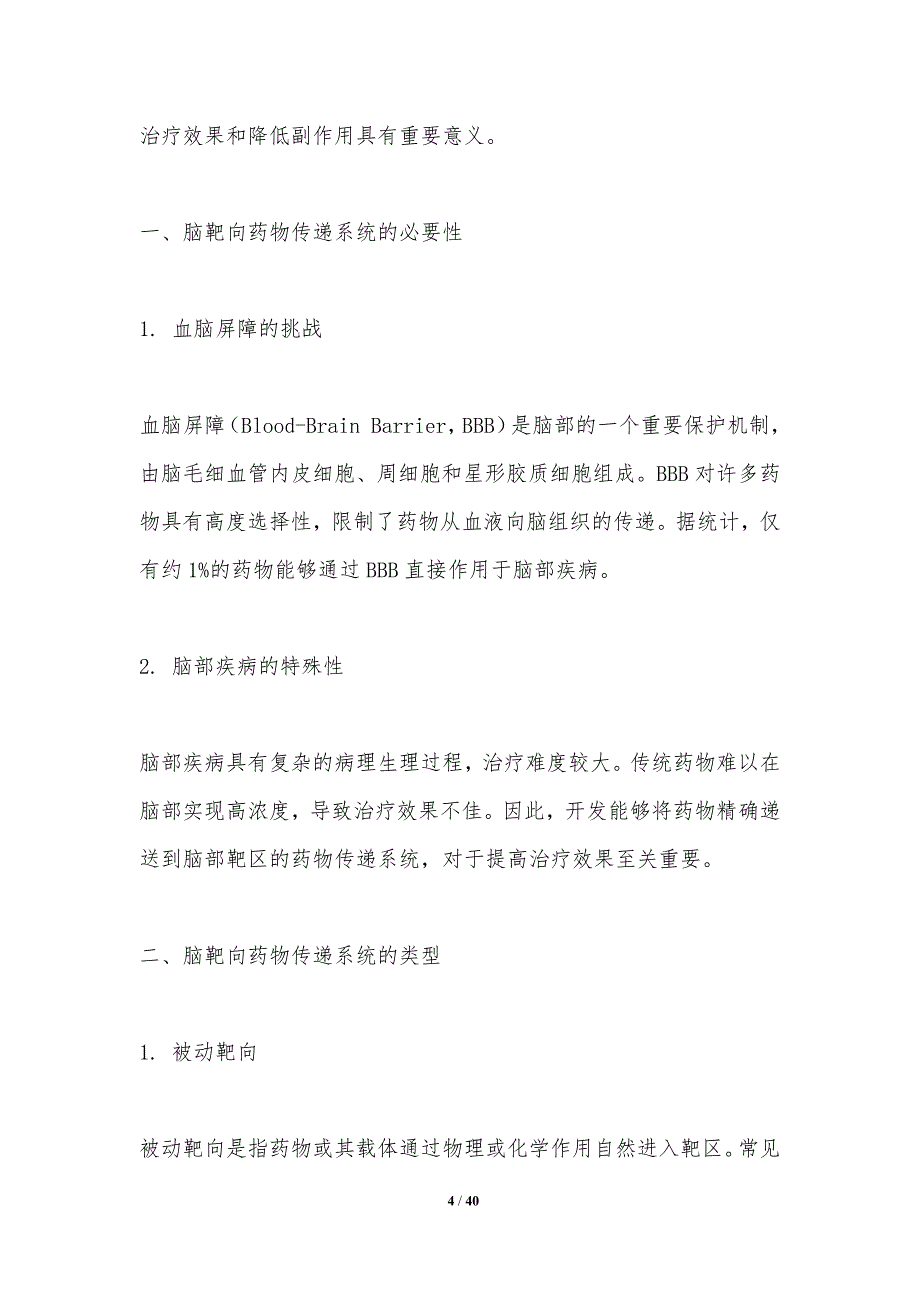 治疗效果和降低副作用具有重要意义。
一、脑靶向药物传递系统的必要性
1. 血脑屏障的挑战
血脑屏障（Blood-Brain Barrier，BBB）是脑部的一个重要保护机制，
由脑毛细血管内皮细胞、周细胞和星形胶质细胞组成。BBB 对许多药
物具有高度选择性，限制了药物从血液向脑组织的传递。据统计，仅
有约 1%的药物能够通过 BBB 直接作用于脑部疾病。
2. 脑部疾病的特殊性
脑部疾病具有复杂的病理生理过程，治疗难度较大。传统药物难以在
脑部实现高浓度，导致治疗效果不佳。因此，开发能够将药物精确递
送到脑部靶区的药物传递系统，对于提高治疗效果至关重要。
二、脑靶向药物传递系统的类型
1. 被动靶向
被动靶向是指药物或其载体通过物理或化学作用自然进入靶区。常见
4 / 40